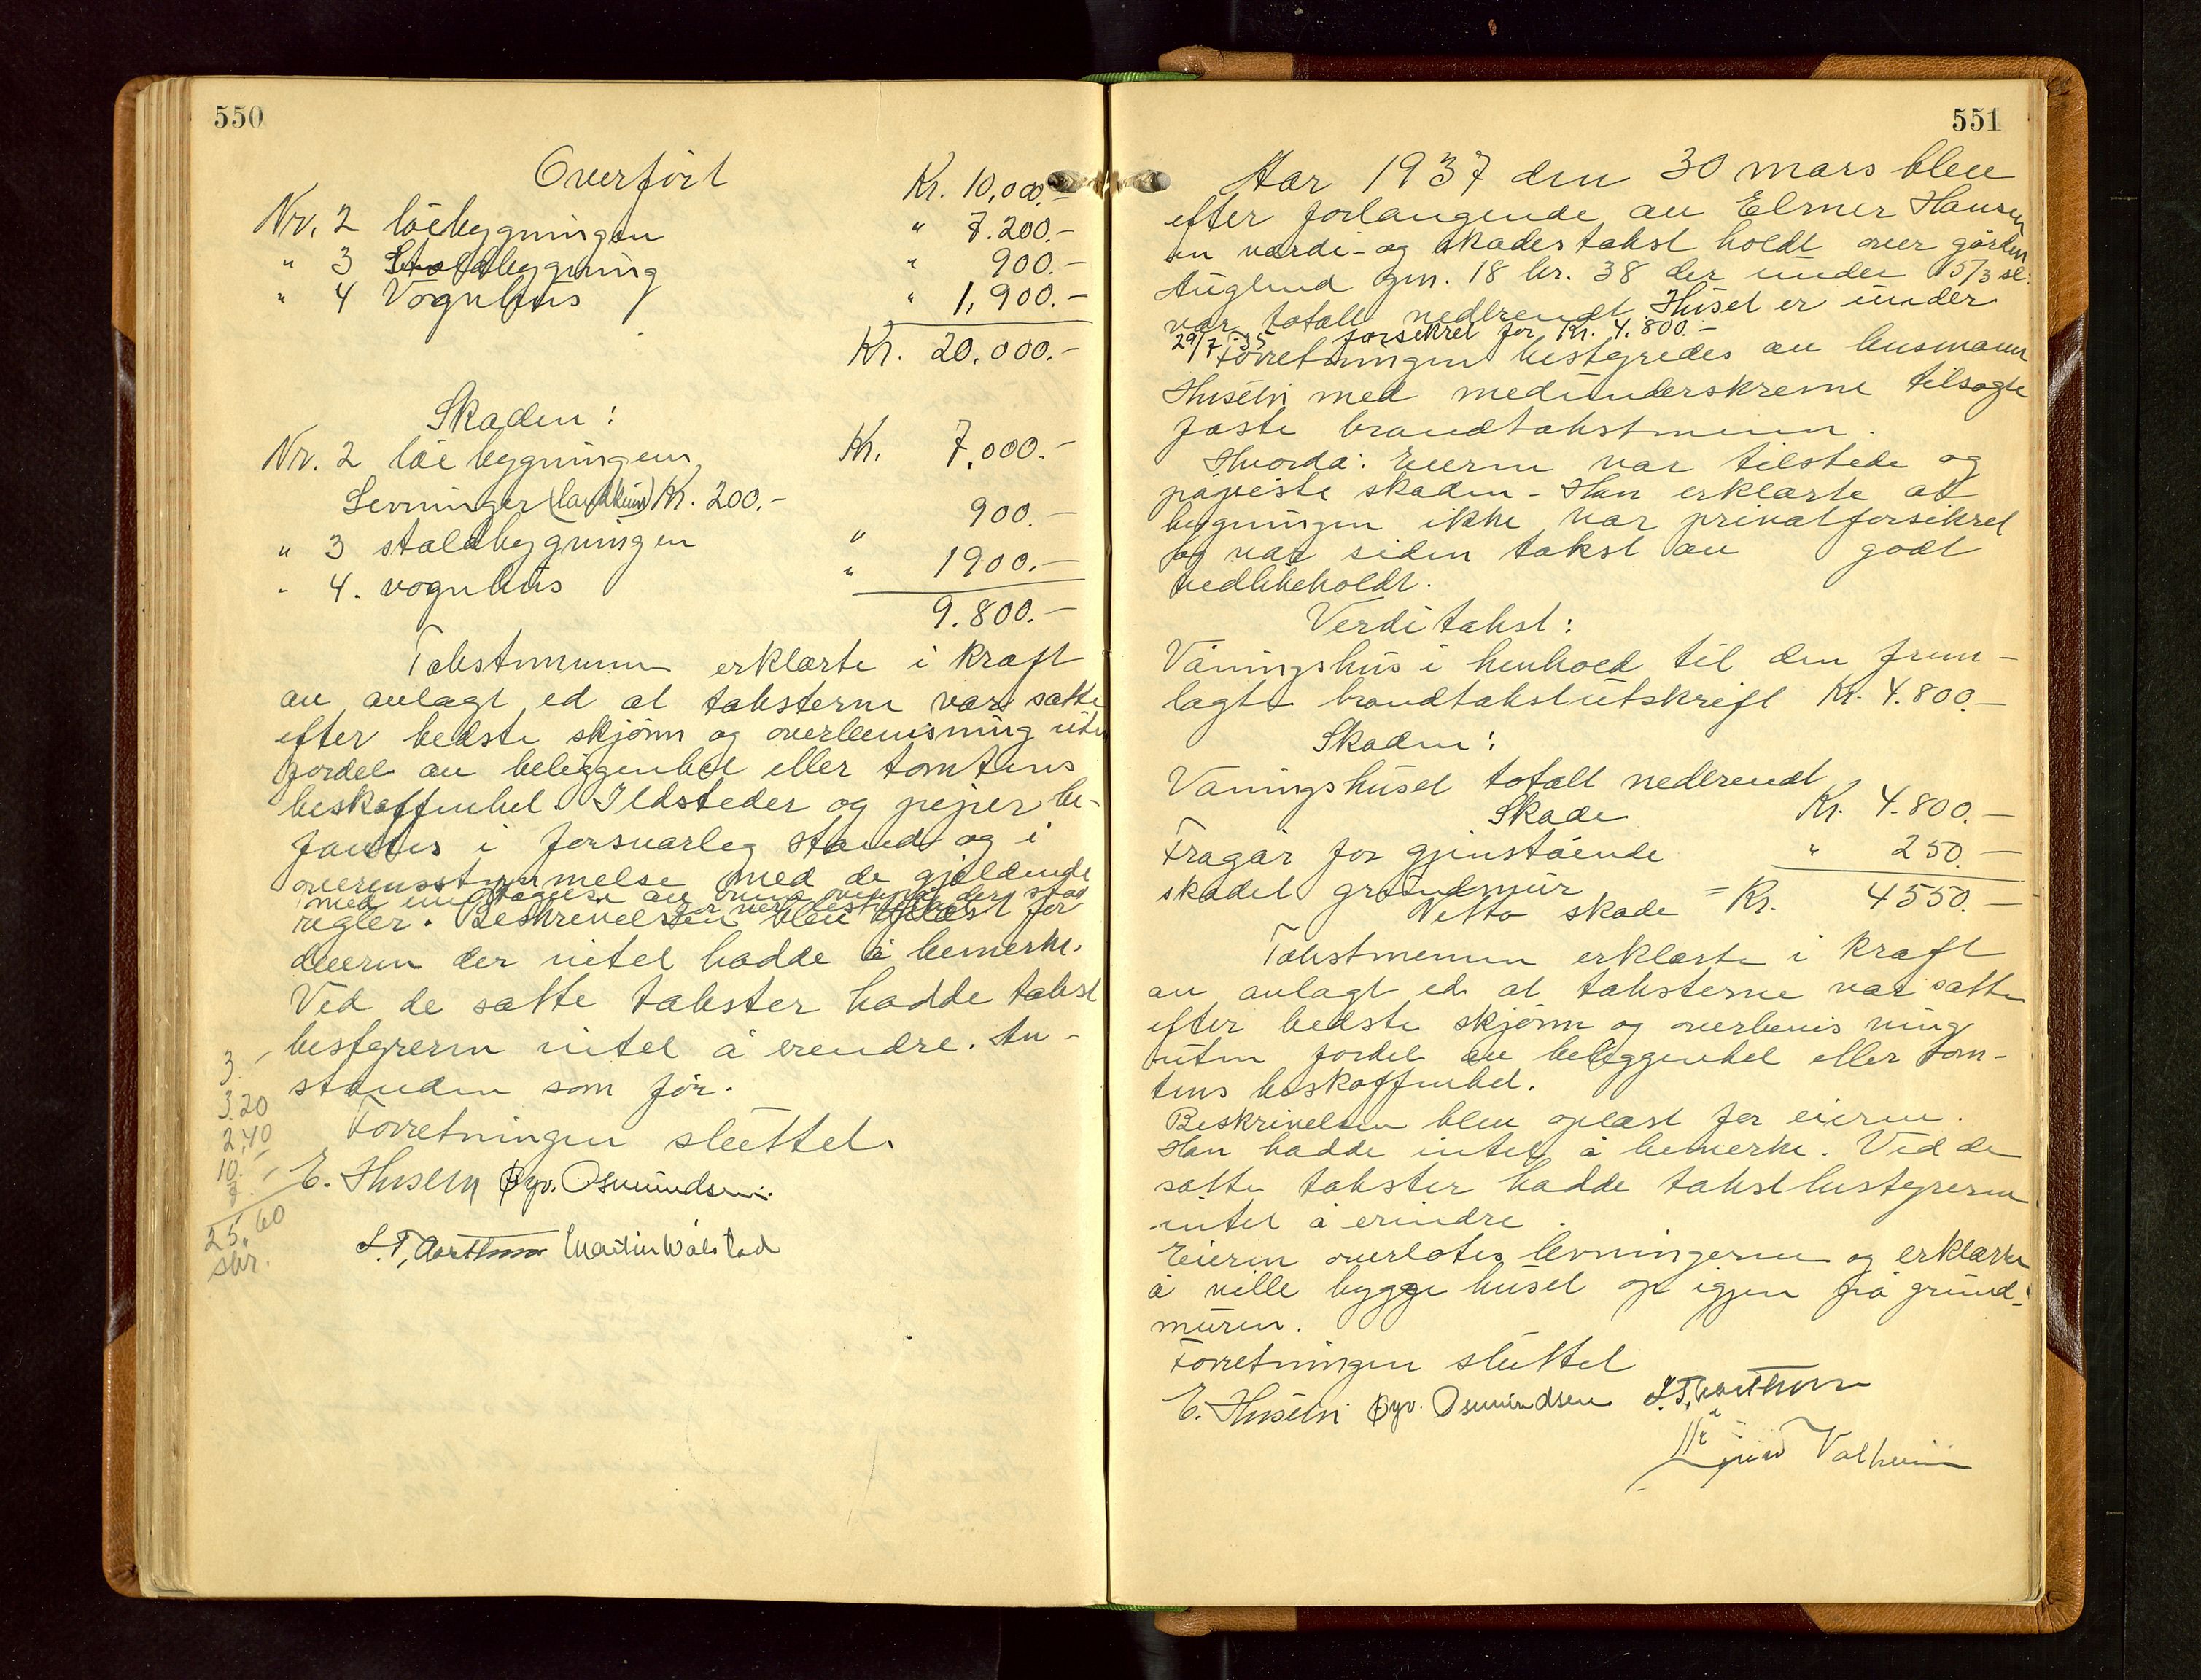 550
Overført Kr. 10,000.-
Nr. 2 löebygningen " 7.200.-
" 3 Staldbygning " 900.-
" 4 Vognhus " 1,900.-
Kr. 20.000.-
Skaden:
Nr. 2 löebygningen Kr. 7,000.-
Levninger Kr. 200.-
" 3 staldbygningen " 900.-
" 4. vognhus " 1900.-
9.800.-
Takstmennene erklærte i kraft
av avlagt ed at taksterne var satte
efter bedste skjønn og overbevisning uten
fordel av beliggenhet eller tomtens
beskaffenhet. Ildsteder og piper be-
fantes i forsvarleg stand og i
overensstemmelse med de gjeldende
med undtagelse av
regler. Beskrivelsen blev oplæst for
eieren der intet hadde å bemerke.
Ved de satte takster hadde takst
bestyreren intet å erindre. An-
standen som før.
Forretningen sluttet.
E. Husebø Øyv. Osmundsen.
Martin Wålstad
3.-
3.20
2,40
10.-
25,60
skr.
551
Aar 1937 den 30 mars blev
efter forlangende av Elmer Hansen
en værdi- og skadestakst holdt over gården
Auglend gnr. 18 br. 38 der under 15/3 sl.
var totalt nedbrendt. Huset er under
29/7-35 forsikret for Kr. 4.800.-
Forretningen bestyredes av lensmann
Husebø med medunderskrevne tilsagte
faste brandtakstmenn.
Hvorda: Eieren var tilstede og
påviste skaden - Han erklærte at
bygningen ikke var privatforsikret
og var siden takst av godt
vedlikeholdt.
Verditakst:
Våningshus i henhold til den frem-
lagte brandtakstutskrift Kr. 4.800.-
Skaden:
Våningshuset totalt nedbrendt
Skade Kr. 4.800.-
Fragår for gjenstående " 250.-
skadet grundmur
Netto skade = Kr. 4550.-
Takstmennene erklærte i kraft
av avlagt ed at taksterne var satte
efter bedste skjønn og overbevisning
uten fordel av beliggenhet eller tom-
tens beskaffenhet.
Beskrivelsen blev oplæst for eieren.
Han hadde intet å bemerke. Ved de
satte takster hadde takstbestyreren
intet å erindre.
Eieren overlates levningerne og erklærte
å ville bygge huset op igjen på grund-
muren.
Forretningen sluttet
E. Husebø Øyv. Osmundsen